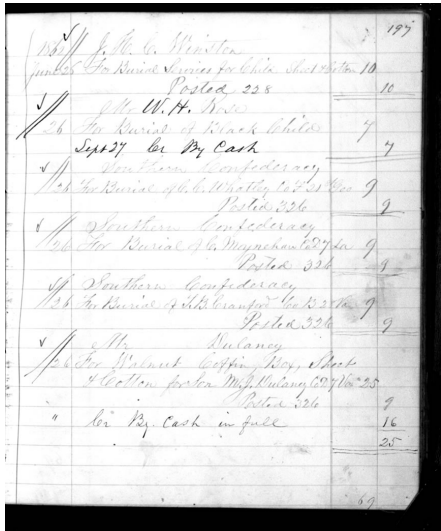 197
J. H. C. Winston
June 26 For Burial Services for Child Shect & Cotton 10
Posted 228 10
Mr W. H. Rose
26 For Burial of Black Child 7
Sept 27 Cr By Cash 7
Southern Confederacy
26 For Burial of C. C. Whatley Co 9
Posted 326 9
Southern Confederacy
26 For Burial of C Moynehan Co 9
Posted 326 9
Southern Confederacy
26 For Burial of Cranford Co B 9
Posted 326 9
Mr Dulaney
26 For Walnut Coffin, Box, Sheet
& Cotton for Son M. J. Dulaney Co 25
Posted 326 9
" Cr By Cash in full 16
25
69